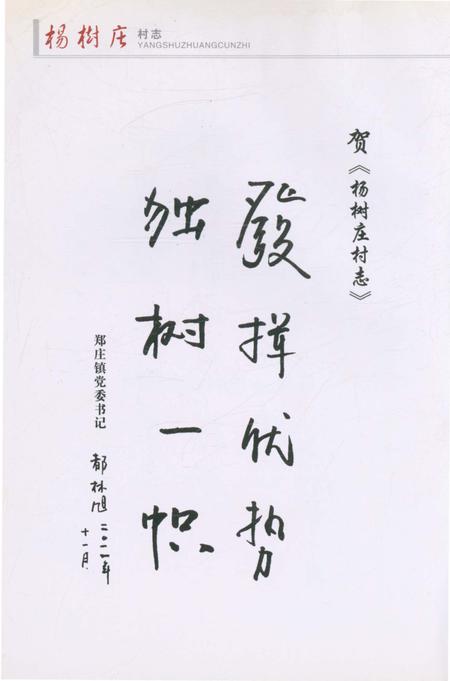 杨树庄 村志
YANGSHUZHUANGCUNZHI
贺《杨树庄村志》
發挥优势
独树一帜
郑庄镇党委书记
郝林旭 二〇一一年
十一月